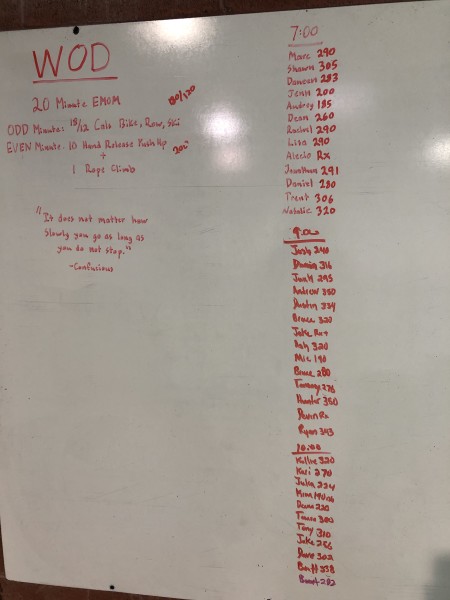 WOD
20 Minute EMOM
150/120
ODD Minute: 15/12 Cals Bike, Row, Ski
EVEN Minute: 10 Hand Release Push Up
200
+
1 Rope Climb
"It does not matter how
slowly you go as long as
you do not stop."
-Confusious
7:00
Marc 290
Shawn 305
Duncan 283
Jenn 200
Audrey 185
Dean 260
Rachel 290
Lisa 290
Alecia Rx
Jonathan 291
Daniel 280
Trent 306
Natalie 320
9:00
Josh 240
316
295
Andrew 350
Dustin 334
Bruce 320
Jake Rx+
Ash 320
Mic 190
280
Tammy 276
Hunter 350
Devin Rx
Ryan 343
10:00
Kellie 320
Kari 270
Julia 224
220
300
Tony 310
Jake 256
Dave 302
338
282